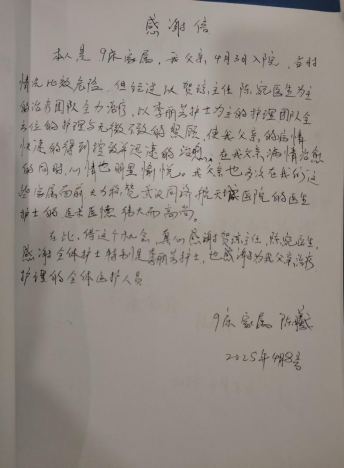 感谢信
本人是9床家属，我父亲4月3日入院，当时
情况比较危险，但经过以贺琼主任陈宛医生为主
的治疗团队全力治疗，以李丽芳护士为主的护理团队全
方位的护理与无微不微的照顾，使我父亲的病情
快速的得到控制并迅速的治愈。在我父亲病情治愈
的同时，心情也明显愉悦。我父亲也多次在我们这
些家属面前大力称赞武汉同济航天城医院的医生
护士的医术医德伟大而高尚。
在此，借这个机会，真心感谢贺琼主任，陈宛医生，
感谢全体护士特别是李丽芳护士，也感谢为我父亲治疗
护理的全体医护人员
9床家属 陈
2025年4月8号